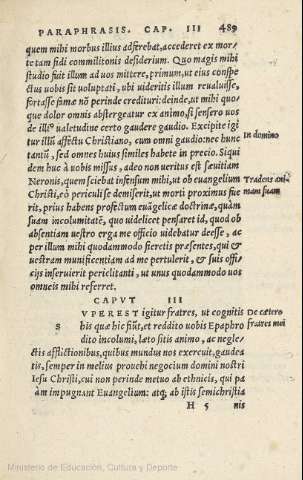 PARAPHRASIS. CAP. III 489
quem mihi morbus illius adferebat, accederet ex mor⸗
te tam fidi commilitonis desiderium. Quo magis mihi
studio fuit illum ad uos mittere, primum, ut eius conspe
ctus uobis sit uoluptati, ubi uideritis illum reualuisse,
fortasse famæ nō perinde credituri: deinde, ut mihi quo⸗
que dolor omnis abstergatur ex animo, si sensero uos
de illius ualetudine certo gaudere gaudio. Excipite igi
tur illū affectu Christiano, cum omni gaudio: nec hunc
In domino
tantū, sed omnes huius similes habete in precio. Siqui
dem huc à uobis missus, adeo non ueritus est sæuitiam
Neronis, quem sciebat infensum mihi, ut ob euangelium
Tradens ani⸗
Christi, eò periculi se demiserit, ut morti proximus fue
mam suam
rit, prius habens profectum euāgelicæ doctrinæ, quàm
suam incolumitatē, quo uidelicet pensaret id, quod ob
absentiam uestro erga me officio uidebatur deesse, ac
per illum mihi quodammodo fieretis præsentes, qui &
uestram munificentiam ad me pertulerit, & suis offi⸗
cijs inseruierit periclitanti, ut unus quodammodo uos
omneis mihi referret.
CAPVT III
SVPEREST igitur fratres, ut cognitis
De cætero
bis quæ hic fiūt, et reddito uobis Epaphro
fratres mei
dito incolumi, læto sitis animo, ac negle⸗
ctis afflictionibus, quibus mundus nos exercuit, gaudea
tis, semper in melius prouehi negocium domini nostri
Iesu Christi, cui non perinde metuo ab ethnicis, qui pa
làm impugnant Euangelium: atq; ab istis semichristia
H 5 nis
Ministerio de Educación, Cultura y Deporte